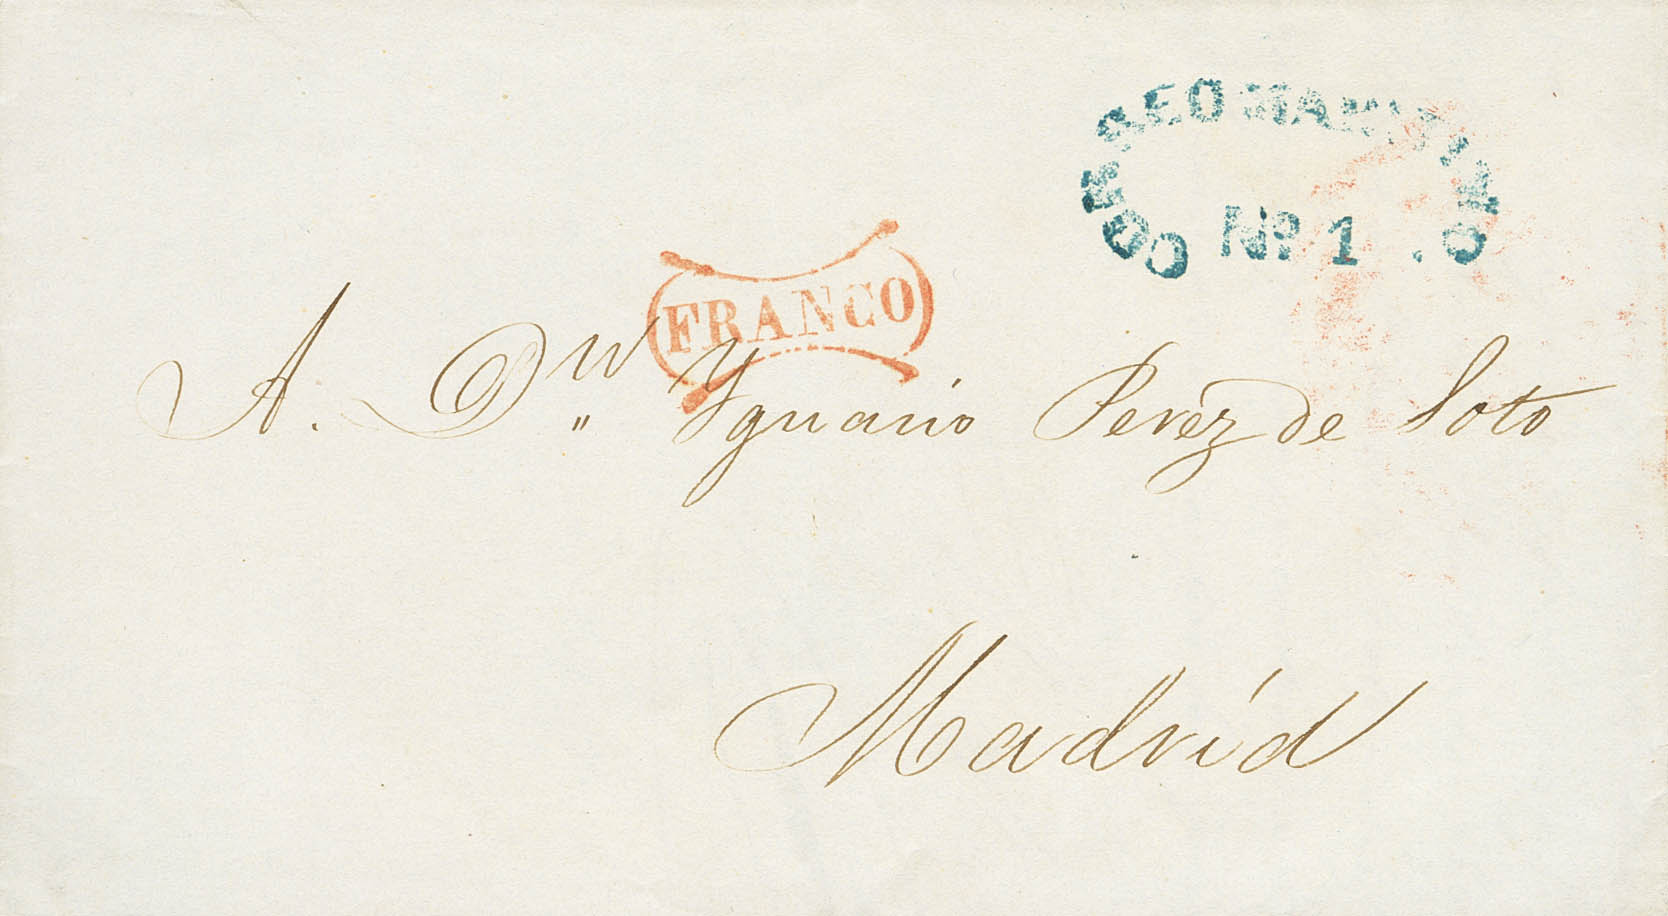 CORREO MARITIMO.
Nº. 1
FRANCO
A. Dn. Ygnacio Perez de Soto
Madrid